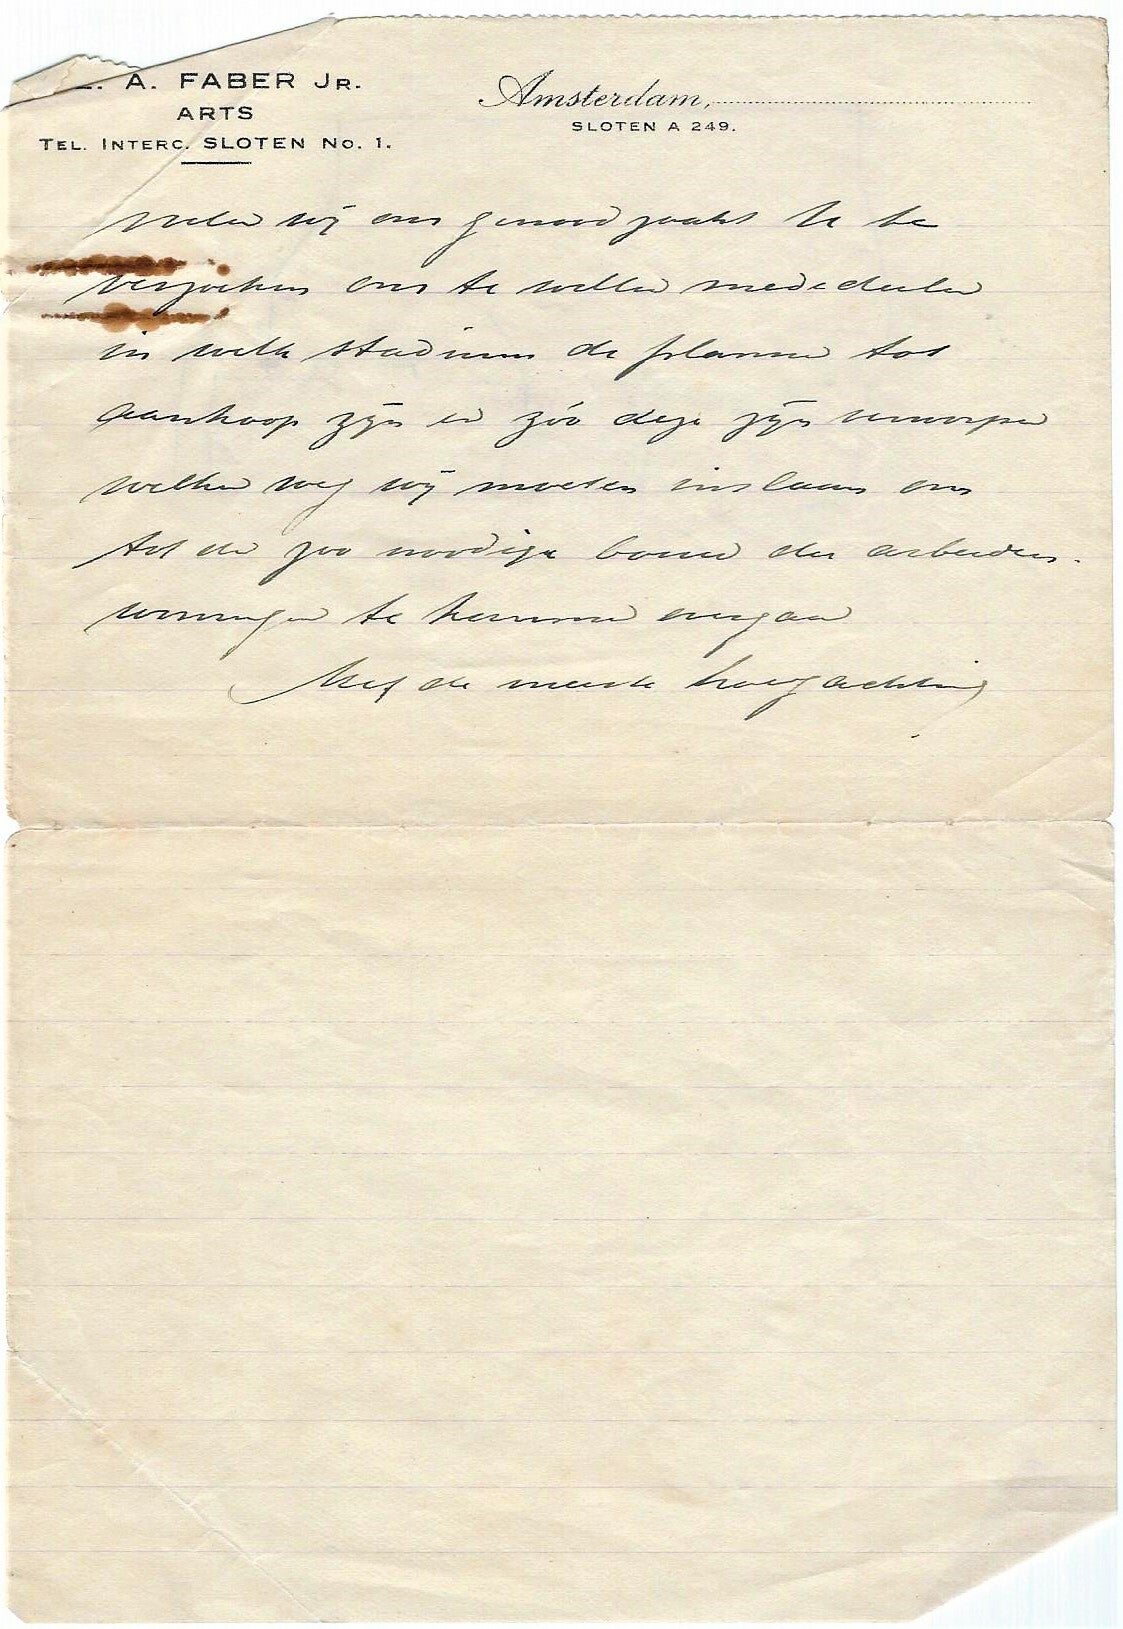 . A. FABER JR.
ARTS
TEL. INTERC. SLOTEN NO. 1.
Amsterdam,
SLOTEN A 249.
wij ons genoodzaakt U te
verzoeken ons te willen mededeelen
in welk stadium de plannen tot
aankoop zijn en zóó deze zijn verworpen
welken weg wij moeten inslaan om
tot de zoo noodige bouw der arbeiders-
woningen te kunnen overgaan
Met de meeste hoogachting